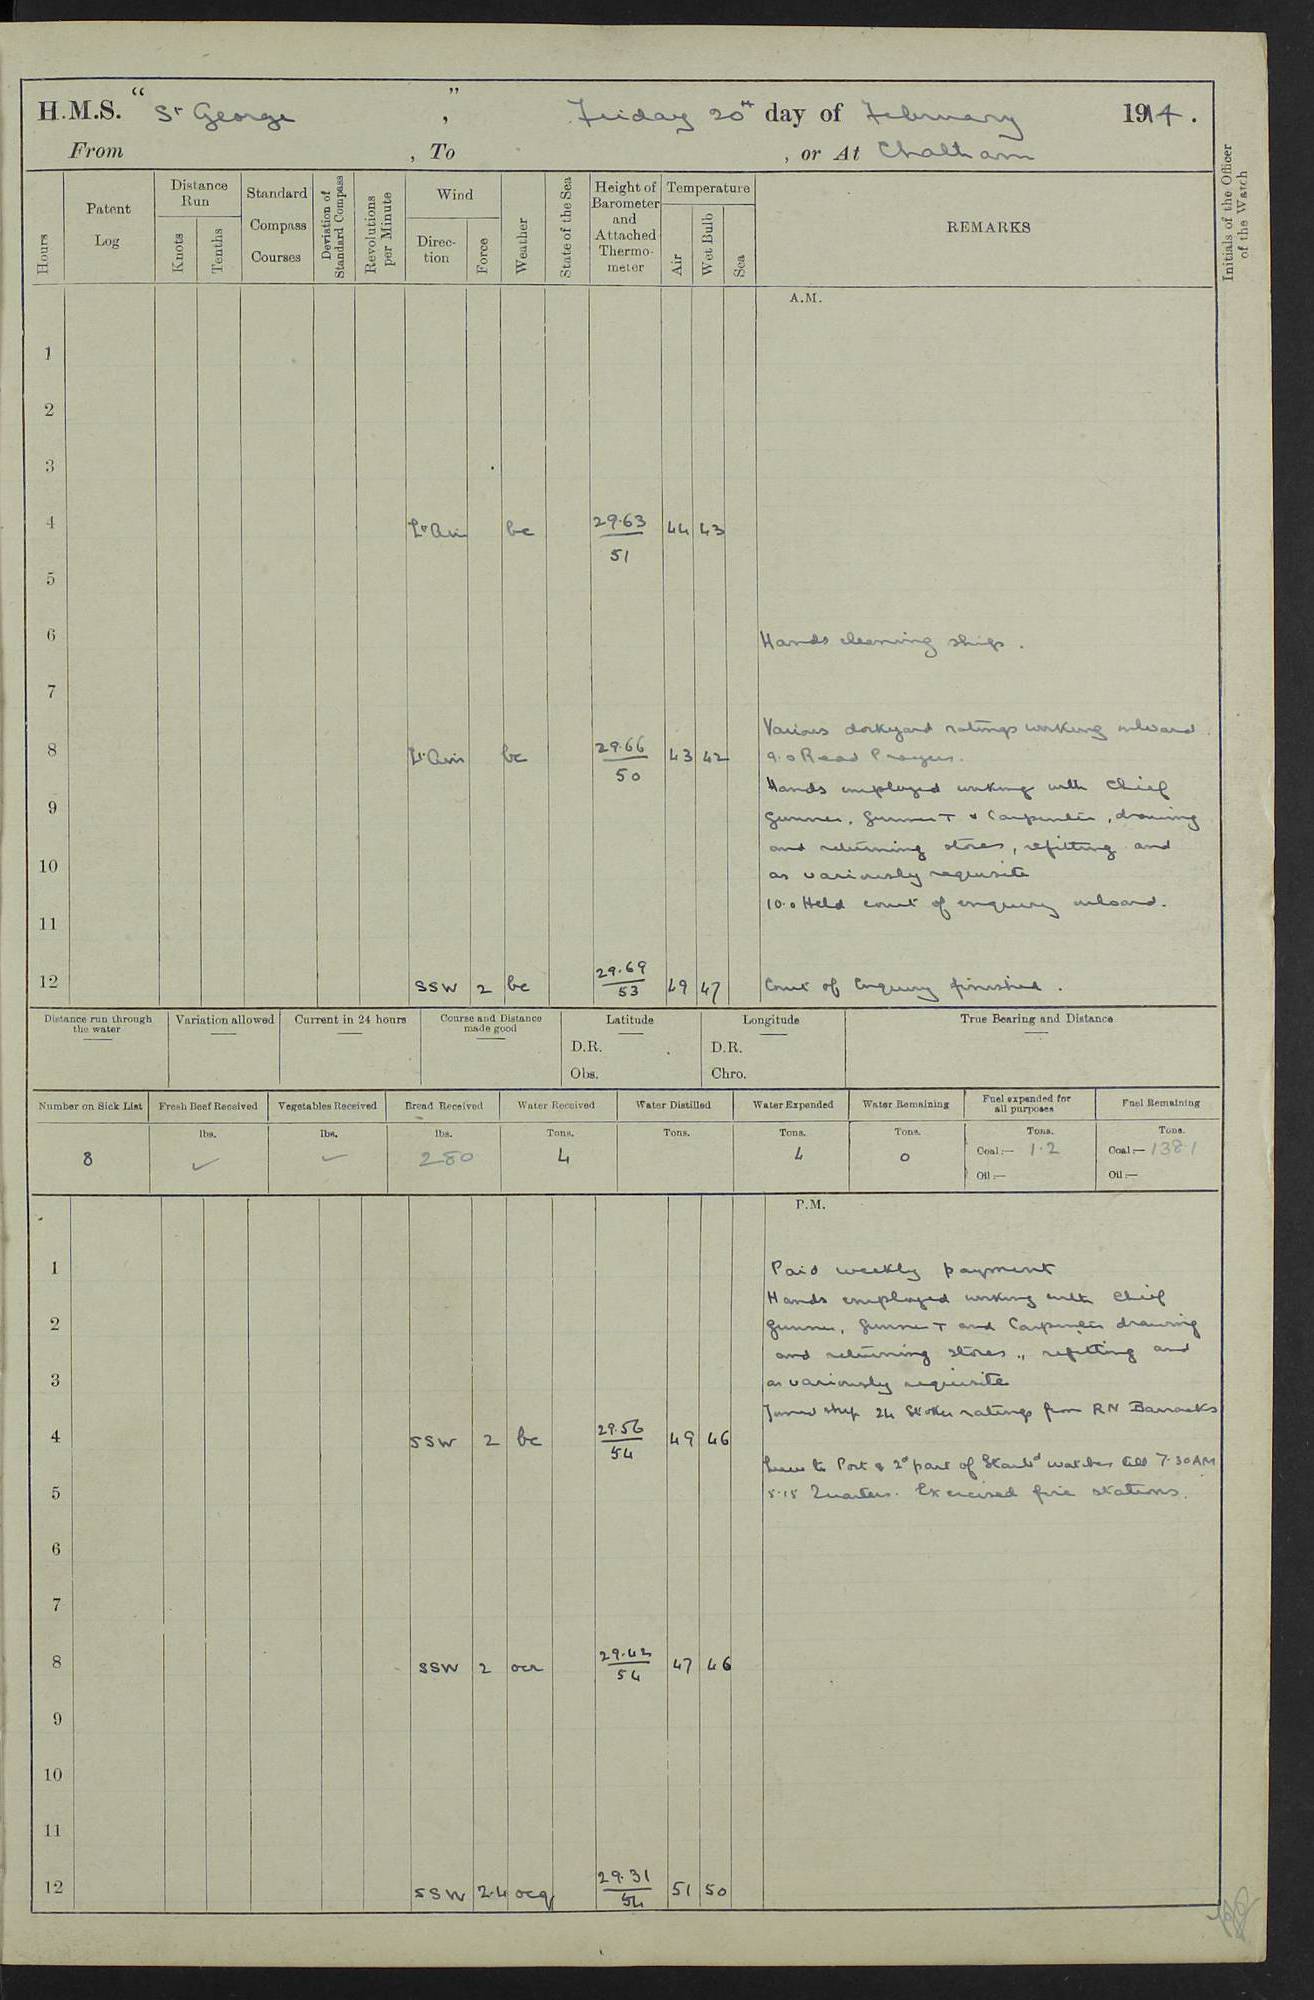 H.M.S. “ St George ” , Friday 20th day of February 1914.
From , To , or At Chatham
Hours
Patent Log
Distance Run
Knots
Tenths
Standard Compass Courses
Deviation of Standard Compass
Revolutions per Minute
Wind
Direc-tion
Force
Weather
State of the Sea
Height of Barometer and Attached Thermo-meter
Temperature
Air
Wet Bulb
Sea
REMARKS
Initials of the Officer of the Watch
A.M.
1
2
3
4 Lt Airs bc 29.63 44 43
51
5
6 Hands cleaning ship.
7
Various dockyard ratings working onboard.
8 Lt Airs bc 29.66 43 42 9.0 Read Prayers.
50
Hands employed working with Chief
9 Gunner, Gunner T & Carpenter, drawing
and returning stores, refitting and
10 as variously requisite
10.0 Held court of enquiry onboard.
11
12 SSW 2 bc 29.69 49 47 Court of Enquiry finished.
53
Distance run through the water
Variation allowed
Current in 24 hours
Course and Distance made good
Latitude
D.R.
Obs.
Longitude
D.R.
Chro.
True Bearing and Distance
Number on Sick List
Fresh Beef Received
Vegetables Received
Bread Received
Water Received
Water Distilled
Water Expended
Water Remaining
Fuel expended for all purposes
Fuel Remaining
lbs. lbs. lbs. Tons. Tons. Tons. Tons. Tons. Tons.
8 ✓ ✓ 280 4 4 0 Coal:— 1.2 Coal:— 138.1
Oil:— Oil:—
P.M.
1 Paid weekly payment
Hands employed working with Chief
2 Gunner, Gunner T and Carpenter drawing
and returning stores,, refitting and
3 as variously requisite
Joined ship 24 Stoker ratings from RN Barracks
4 SSW 2 bc 29.56 49 46
54
Leave to Port & 2d part of Starbd watches till 7.30 AM
5 5.15 Quarters. Exercised fire stations.
6
7
8 SSW 2 ocr 29.42 47 46
54
9
10
11
12 SSW 2.4 ocq 29.31 51 50
54